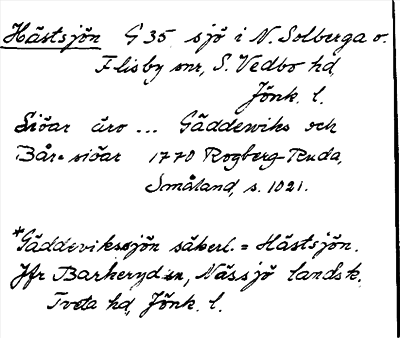 Hästsjön G 35 sjö i N. Solberga o.
Flisby snr, S. Vedbo hd,
Jönk. l.
Siöar äro ... Gäddewiks och
Bår-siöar 1770 Rogberg-Ruda,
Småland, s. 1021.
*Gäddevikssjön säkerl. = Hästsjön.
Jfr Barkeryd sn, Nässjö landsk.
Tveta hd, Jönk. l.